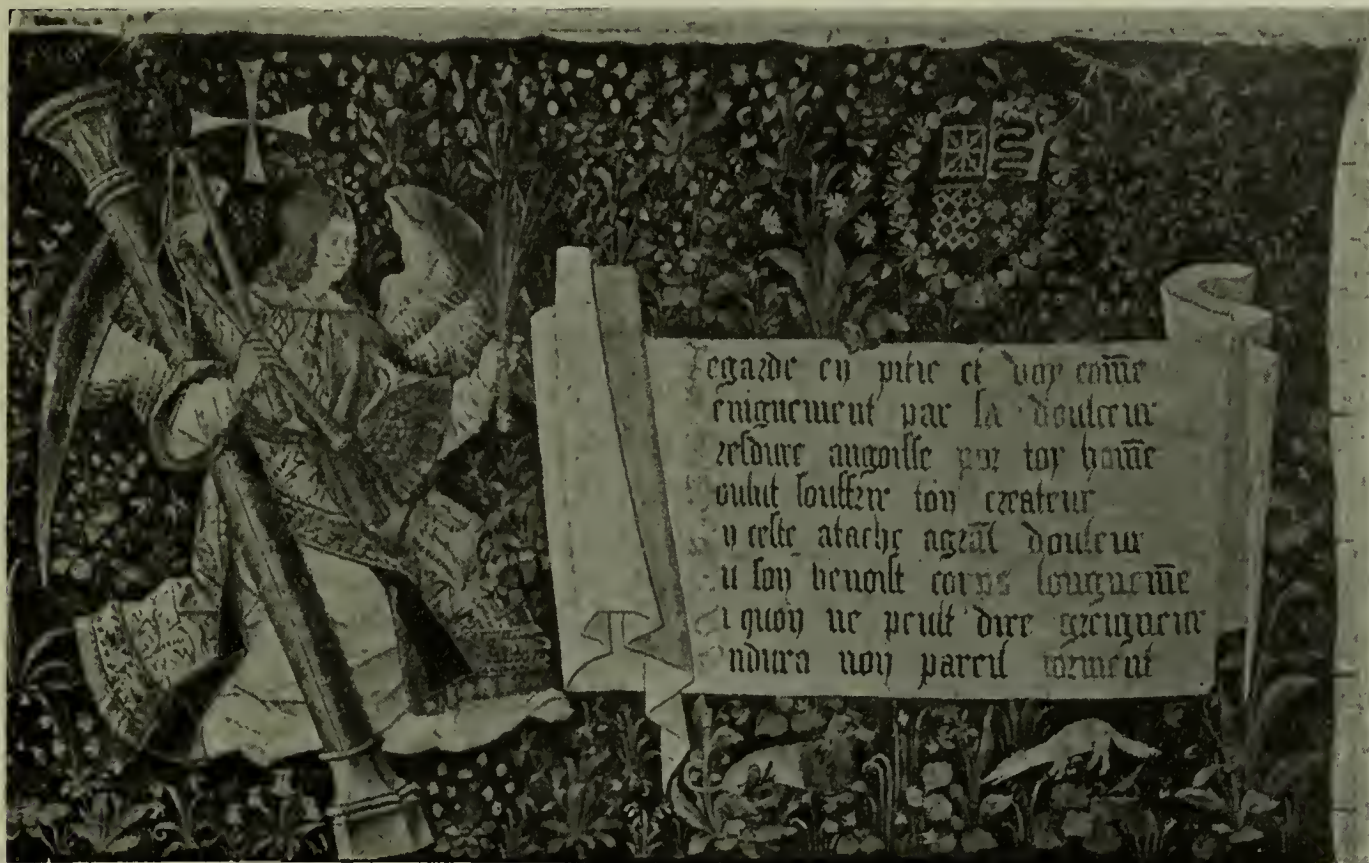 Regarde en pitie et voy cōme
enignement par sa doulceur
resdure angoisse por toy hōme
oulut souffrir ton createur
n ceste atache agrāt douleur
u son benoist corps longuemē
i quon ne peult dire greigneur
ndura non pareil torment